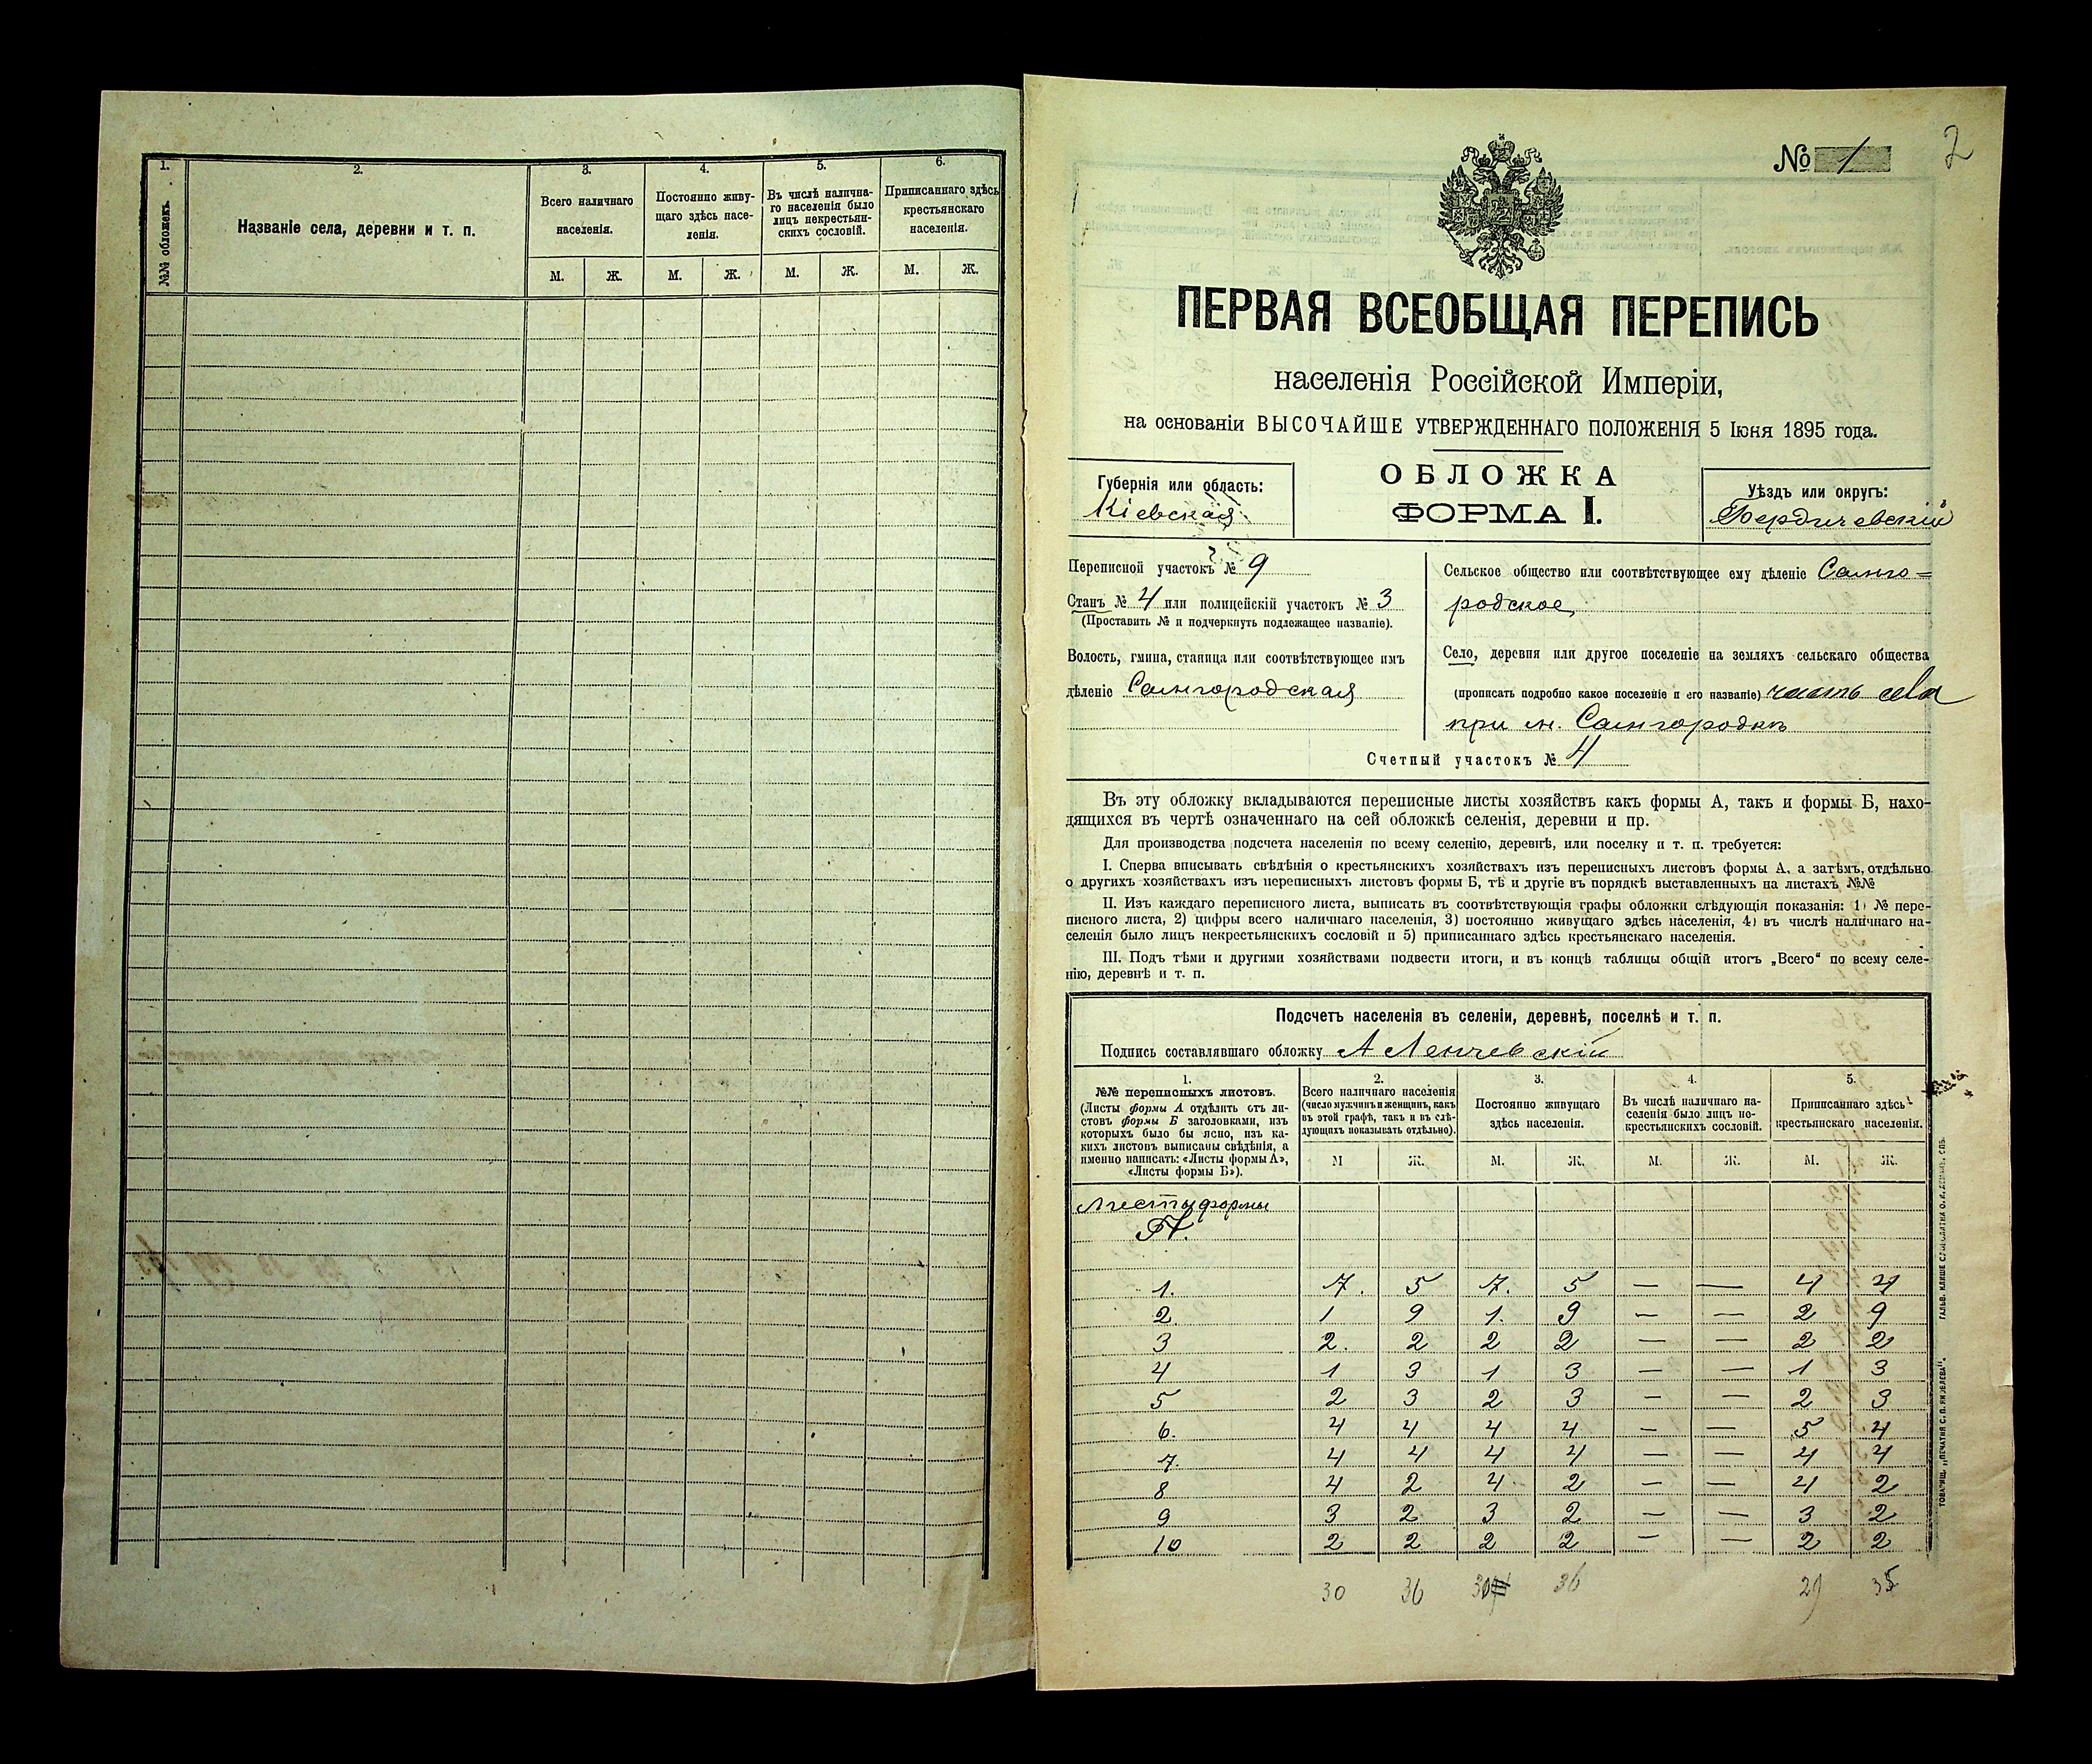 1.
2.
3.
4.
5.
6.
№№ обложекъ.
Названіе села, деревни и т. п.
Всего наличнаго
населенія.
Постоянно живу-
щаго здѣсь насе-
ленія.
Въ числѣ налична-
го населенія было
лицъ некрестьян-
скихъ сословій.
Приписаннаго здѣсь
крестьянскаго
населенія.
М. Ж. М. Ж. М. Ж. М. Ж.
2
№ 1
ПЕРВАЯ ВСЕОБЩАЯ ПЕРЕПИСЬ
населенія Россійской Имперіи,
на основаніи ВЫСОЧАЙШЕ УТВЕРЖДЕННАГО ПОЛОЖЕНІЯ 5 Іюня 1895 года.
Губернія или область:
Кіевская
ОБЛОЖКА
ФОРМА I.
Уѣздъ или округъ:
Бердичевскій
Переписной участокъ № 9
Станъ № 4 или полицейскій участокъ № 3
(Проставить № и подчеркнуть подлежащее названіе).
Волость, гмина, станица или соотвѣтствующее имъ
дѣленіе Самгородская
Сельское общество или соотвѣтствующее ему дѣленіе Самго=
родское
Село, деревня или другое поселеніе на земляхъ сельскаго общества
(прописать подробно какое поселеніе и его названіе) часть села
при м. Самгородкѣ
Счетный участокъ № 4
Въ эту обложку вкладываются переписные листы хозяйствъ какъ формы А, такъ и формы Б, нахо-
дящихся въ чертѣ означеннаго на сей обложкѣ селенія, деревни и пр.
Для производства подсчета населенія по всему селенію, деревнѣ, или поселку и т. п. требуется:
I. Сперва вписывать свѣдѣнія о крестьянскихъ хозяйствахъ изъ переписныхъ листовъ формы А, а затѣмъ, отдѣльно
о другихъ хозяйствахъ изъ переписныхъ листовъ формы Б, тѣ и другіе въ порядкѣ выставленныхъ на листахъ №№
II. Изъ каждаго переписного листа, выписать въ соотвѣтствующія графы обложки слѣдующія показанія: 1) № пере-
писного листа, 2) цифры всего наличнаго населенія, 3) постоянно живущаго здѣсь населенія, 4) въ числѣ наличнаго на-
селенія было лицъ некрестьянскихъ сословій и 5) приписаннаго здѣсь крестьянскаго населенія.
III. Подъ тѣми и другими хозяйствами подвести итоги, и въ концѣ таблицы общій итогъ „Всего“ по всему селе-
нію, деревнѣ и т. п.
Подсчетъ населенія въ селеніи, деревнѣ, поселкѣ и т. п.
Подпись составлявшаго обложку А Ленчевскій
1.
№№ переписныхъ листовъ.
(Листы формы А отдѣлить отъ ли-
стовъ формы Б заголовками, изъ
которыхъ было бы ясно, изъ ка-
кихъ листовъ выписаны свѣдѣнія, а
именно написать: «Листы формы А»,
«Листы формы Б»).
2.
Всего наличнаго населенія
(число мужчинъ и женщинъ, какъ
въ этой графѣ, такъ и въ слѣ-
дующихъ показывать отдѣльно).
3.
Постоянно живущаго
здѣсь населенія.
4.
Въ числѣ наличнаго на-
селенія было лицъ не-
крестьянскихъ сословій.
5.
Приписаннаго здѣсь
крестьянскаго населенія.
М Ж. М. Ж. М. Ж. М. Ж.
Листы формы
А.
1. 7. 5 7. 5 — — 4 4
2. 1 9 1. 9 — — 2 9
3 2. 2 2 2 — — 2 2
4 1 3 1 3 — — 1 3
5 2 3 2 3 — — 2 3
6. 4 4 4 4 — — 5 4
7. 4 4 4 4 — — 4 4
8 4 2 4 2 — — 4 2
9 3 2 3 2 — — 3 2
10 2 2 2 2 — — 2 2
30 36 30 36 29 35